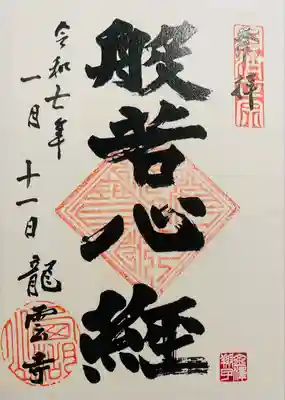 奉拝
般若心経
令和七年
一月十一日
龍雲寺